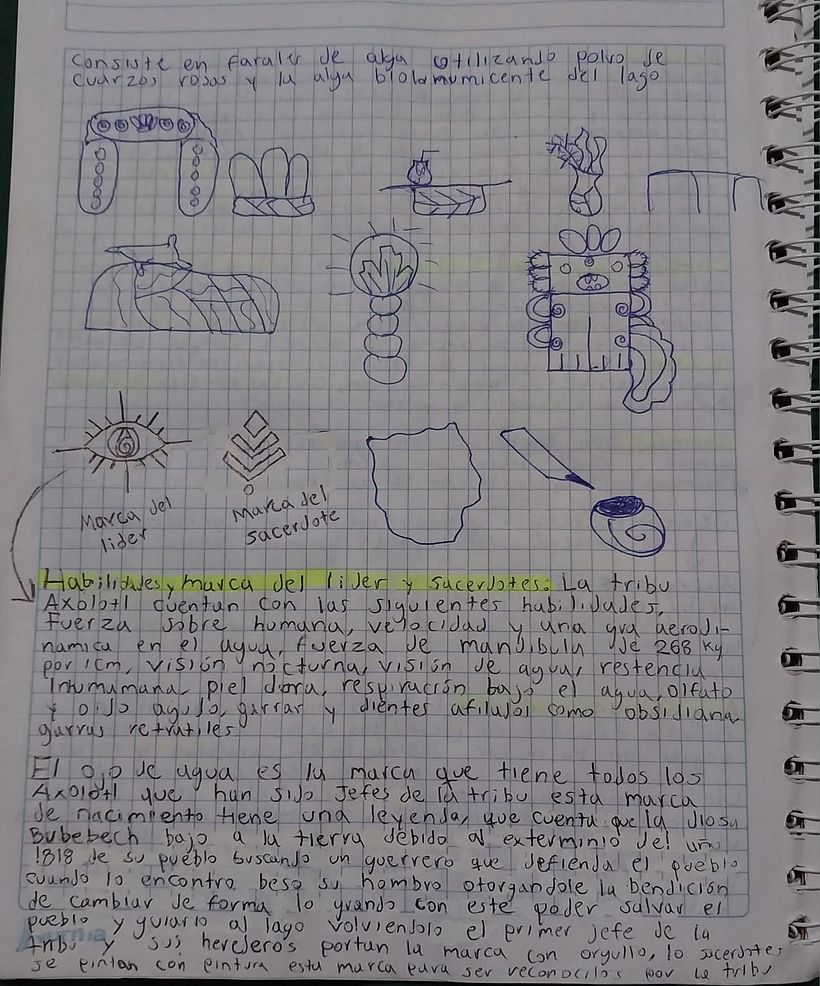 Consiste en farales de alga utilizando polvo de
cuarzos rosas y la alga biolamumicente del lago
Marca del
lider
Marca del
sacerdote
Habilidades y marca del lider y sacerdotes: La tribu
Axolotl cuentan con las siguientes habilidades,
fuerza sobre humana, velocidad y una gra aerodi-
namica en el agua, fuerza de mandibula de 268 kg
por 1cm, visión nocturna, visión de agua, restencia
Inhumana, piel dora, respiración bajo el agua, olfato
y oido agudo, garrar y dientes afilados como obsidiana
garras retratiles
El ojo de agua es la marca que tiene todos los
Axolotl que han sido Jefes de la tribu esta marca
de nacimiento tiene una leyenda, que cuenta que la diosa
Bubebech bajo a la tierra debido al exterminio del año
1818 de su pueblo buscando un guerrero que defienda el pueblo
cuando lo encontro beso su hombro otorgandole la bendición
de cambiar de forma lo grando con este poder salvar el
pueblo y guiarlo al lago volviendolo el primer jefe de la
tribu y sus herederos portan la marca con orgullo, lo sacerdotes
se pintan con pintura esta marca para ser reconocidos por la tribu